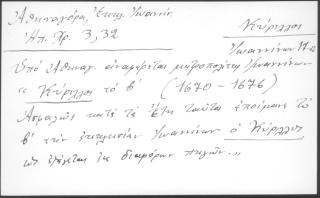 Ἀθηναγόρα, Ἐκκλ. Ἰωαννίν.
Κύριλλος
Ἠπ. Χρ. 3, 32
Ἰωαννίνων
Ὑπό Ἀθηναγ. ἀναφέρεται μητροπολίτης Ἰωαννίνων
Κύριλλος τό β΄ (1670 - 1676)
Ἀσφαλῶς κατά τά ἔτη ταῦτα ἐποίμανε τό
β΄ τήν ἐπαρχίαν Ἰωαννίνων ὁ Κύριλλος
ὡς ἐξάγεται ἐκ διαφόρων πηγῶν...